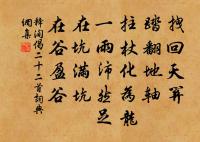 找回天
踏翻地軸
拄杖化為龍
一雨沛然足
在坑滿坑
在谷盈谷
釋偈二十二首詞典
網集